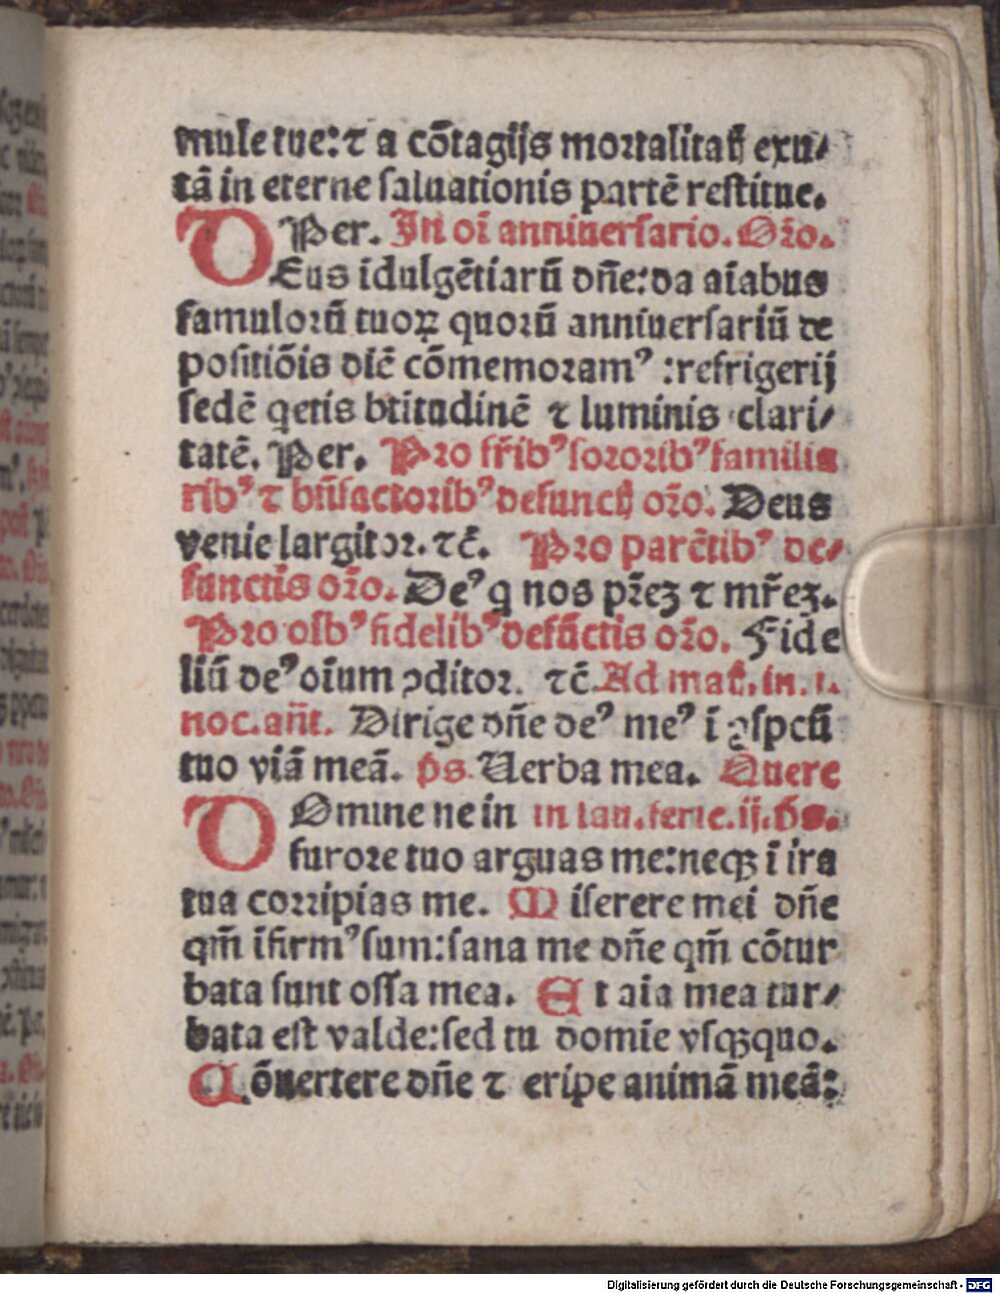 mule tue: ⁊ a cōtagijs mortalitatꝭ exu⸗
tā in eterne ſaluationis partē reſtitue.
Per. In oī anniuerſario. Oŕo.
DEus īdulgētiarū dn̄e: da aīabus
famulorū tuoꝝ quorū anniuerſariū de
poſitiōis diē cōmemoramꝰ: refrigerij
ſedē qetis btitudinē ⁊ luminis clari⸗
tatē. Per. Pro fr̄ibꝰ ſororibꝰ familia
ribꝰ ⁊ bn̄factoribꝰ defunctꝭ oŕo. Deus
venie largitor. ⁊c̄. Pro parētibꝰ de⸗
functis oŕo. Deꝰ q nos pr̄eꝫ ⁊ mr̄eꝫ.
Pro oībꝰ fidelibꝰ defūctis oŕo. Fide
liū deꝰ oīum ꝯditor. ⁊c̄. Ad mat. in. i.
noc. an̄t. Dirige dn̄e deꝰ meꝰ ī ꝯſpcū
tuo viā meā. p̄s. Uerba mea. Quere
DOmine ne in in lau. ferie. ij. p̄s.
furore tuo arguas me: neqꝫ ī ira
tua corripias me. Miſerere mei dn̄e
qm̄ īfirmꝰ ſum: ſana me dn̄e qm̄ cōtur
bata ſunt oſſa mea. Et aīa mea tur⸗
bata eſt valde: ſed tu domīe vſqꝫquo.
Cōuertere dn̄e ⁊ eripe animā meā:
Digitalisierung gefördert durch die Deutsche Forschungsgemeinschaft - DFG